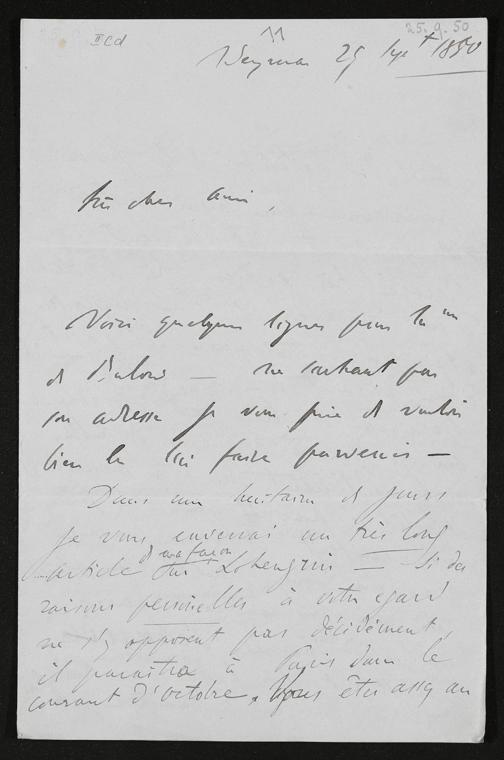 II Cd
11
25.9.50
Weymar 25 Sept 1850
Très cher ami,
Voici quelques lignes pour Mme
de — ne sachant pas
son adresse je vous prie de vouloir
bien le lui faire parvenir —
Dans une huitaine de jours
je vous enverrai un très long
de ma façon
article sur Lohengrin — Si des
raisons personelles à votre égard
ne s'y opposent pas décidément,
il paraitra à Paris dans le
courant d'octobre. Vous êtes assez au